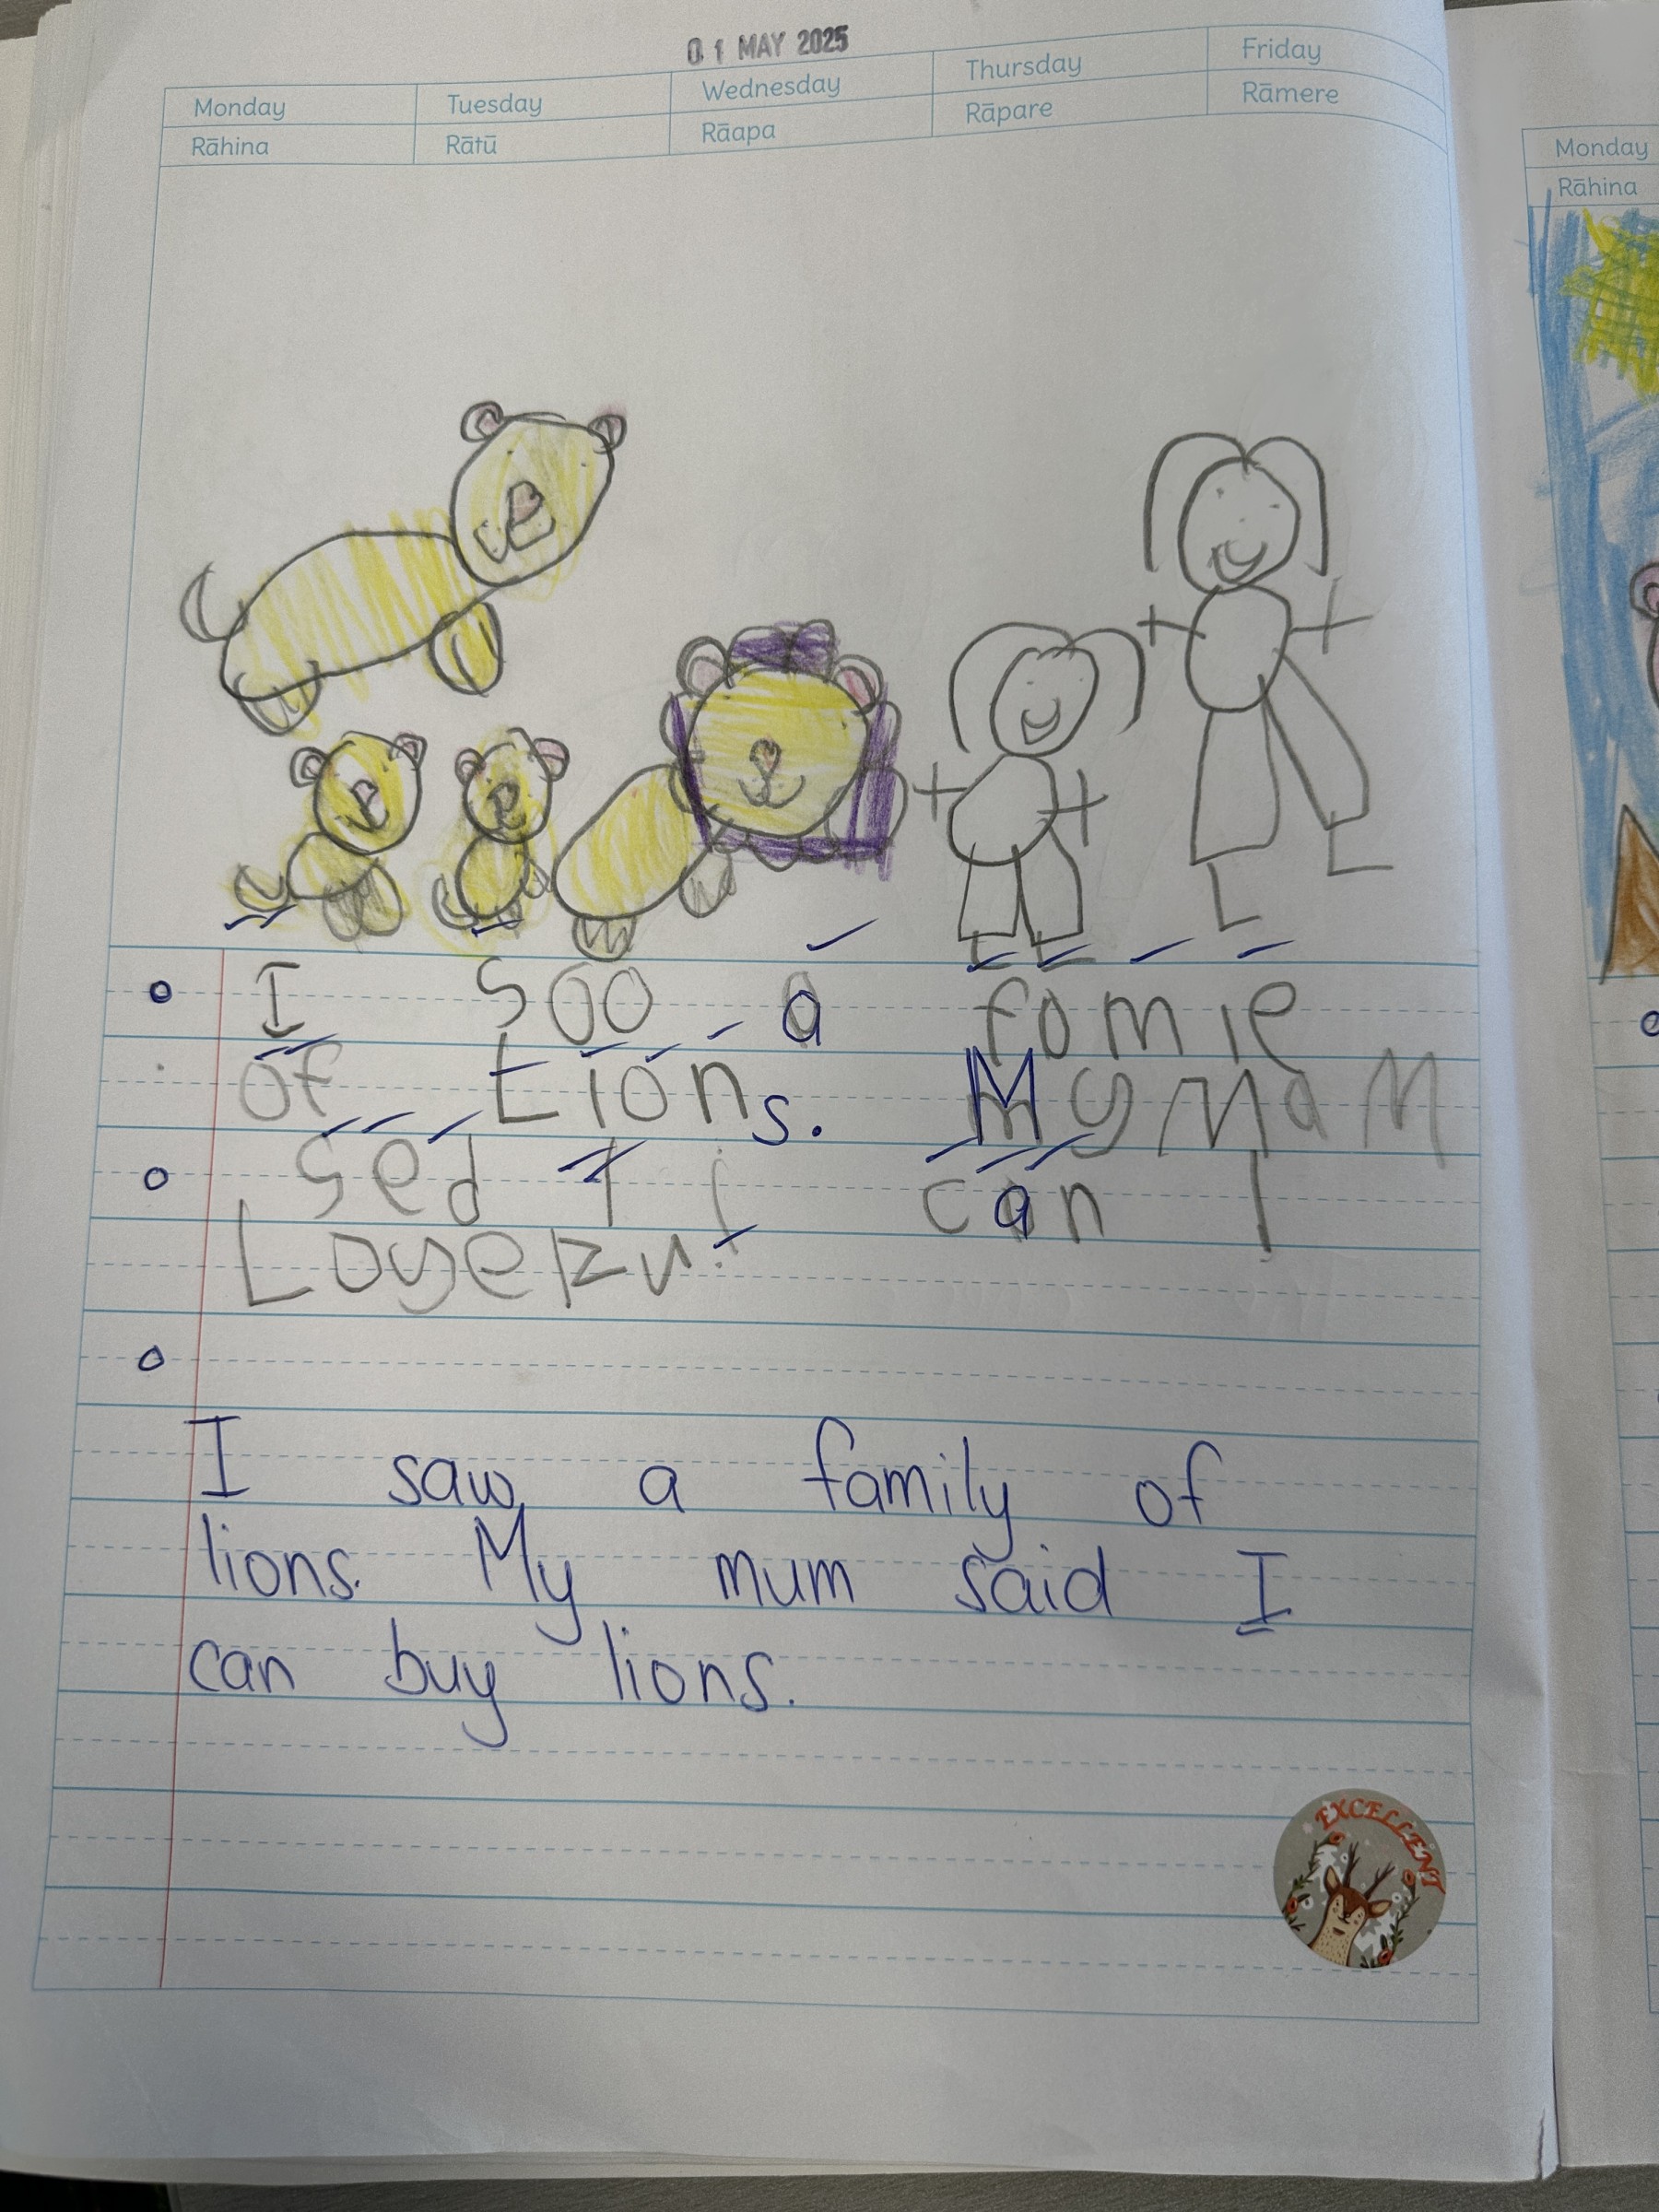 01 MAY 2025
Monday Tuesday Wednesday Thursday Friday
Rāhina Rātū Rāapa Rāpare Rāmere
Monday
Rāhina
I soo a fomie
of Lions. My MaM
sed I i can l
I saw a family of
lions. My mum said I
can buy lions.
EXCELLENT